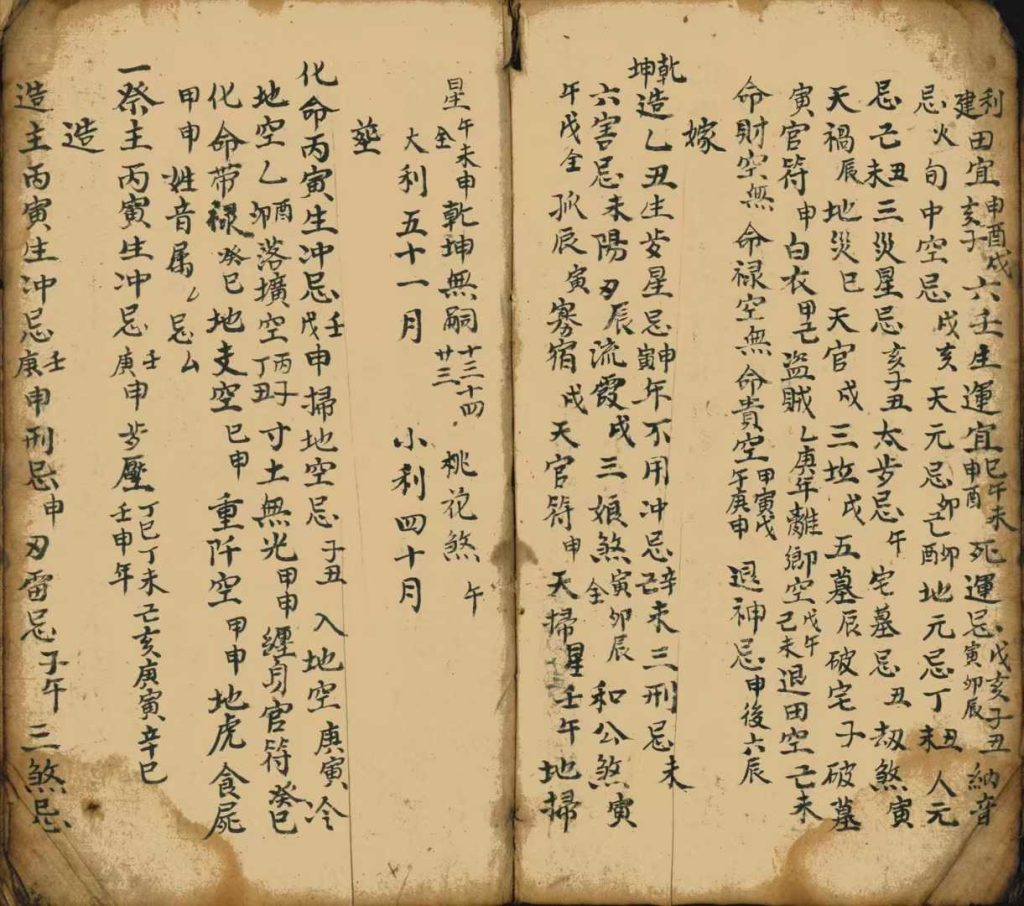 利建田宜申酉戌亥子六壬生運宜巳午未申酉死運忌戊亥子丑寅卯辰納音
忌火旬中空忌戌亥天元忌卯己卯酉地元忌丁丑未人元
忌己丑未三災星忌亥子丑太歩忌午宅墓忌丑劫煞寅
天禍辰地災巳天官戌三坵戌五墓辰破宅子破墓
寅官符申白衣甲己盜賊乙庚年離鄉空戊午己未退田空己未
命財空無命禄空無命貴空甲寅戊午庚申退神忌申後六辰
嫁
乾坤造乙丑生歩星忌申寅年不用沖忌辛己未三刑忌未
六害忌未陽刃辰流霞戌三娘煞寅卯辰全和公煞寅
午戌全孤辰寅寡宿戌天官符申天掃星壬午地掃
星午未申全乾坤無嗣十三十四廿三桃花煞午
大利五十一月 小利四十月
塟
化命丙寅生沖忌壬戊申掃地空忌子丑入地空庚寅冷
地空乙酉卯落壙空丙子丁丑寸土無光甲申纏身官符癸巳
化命帶禄癸巳地支空巳申重阡空甲申地虎食屍
甲申姓音属厶忌厶
一祭主丙寅生沖忌壬庚申歩壓丁巳丁未己亥庚寅辛巳壬申年
造
造主丙寅生沖忌壬庚申刑忌申刃雷忌子午三煞忌